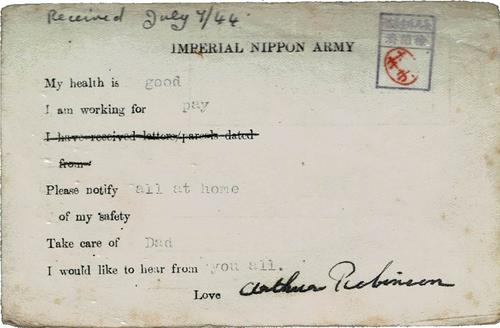 Received July 7/44.
IMPERIAL NIPPON ARMY
My health is good
I am working for pay
I have received letters/parcels dated
from
Please notify all at home
of my safety
Take care of Dad
I would like to hear from you all.
Love Arthur Robinson